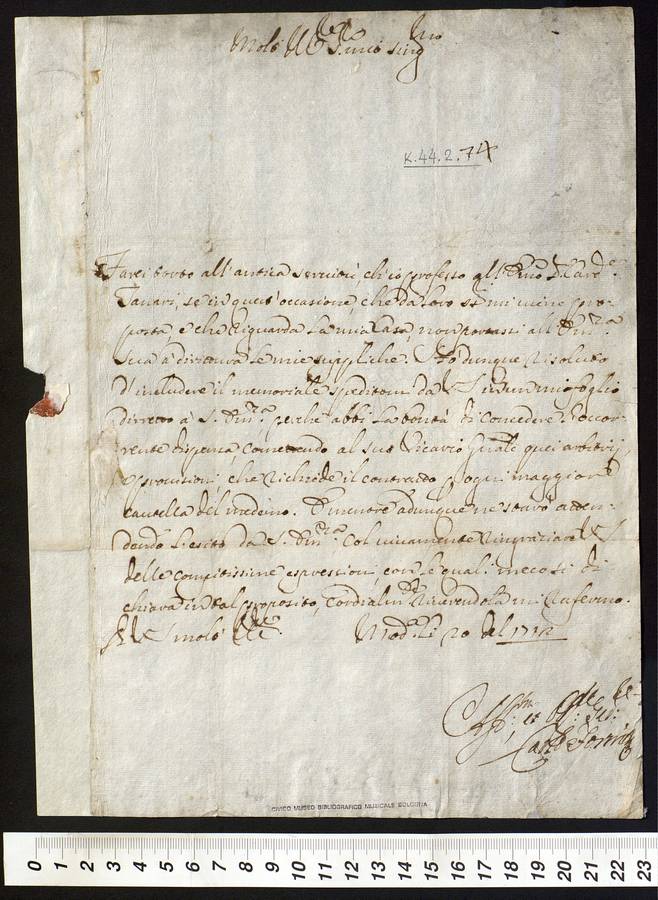 Molo Ill.re S. mio sing.mo
K.44.2.74
Farei torto all'antica servitù, ch'io professo all'Em.o S. Card.e
Tanari, se in quest'occasione, che da loro S.i mi viene pro-
posta e che riguarda la mia Casa, non portassi all'Em.za
Sua a dirittura le mie suppliche. Hò dunque risoluto
d'includere il memoriale speditomi da V.S. in un mio foglio
diretto à S. Em.za perche abbi la bontà di concedere l'occor-
rente dispensa, comettendo al suo Vicario Gñale quei arbitrij,
e provisioni, che richiede il contratto p ogni maggiore
cautella del medemo. D'umore adunque ne starò atten-
dendo l'esito da S. Em.za col vivamente ringraziare V.S.
delle compitissime espressioni, con le quali meco si di
chiara in tal proposito, cordialm.te riverendola mi rafermo.
Di V.S. molo Ill.re Mod.a li 20 del 1712
Aff.mo
Carlo
CIVICO MUSEO BIBLIOGRAFICO MUSICALE BOLOGNA
0 1 2 3 4 5 6 7 8 9 10 11 12 13 14 15 16 17 18 19 20 21 22 23